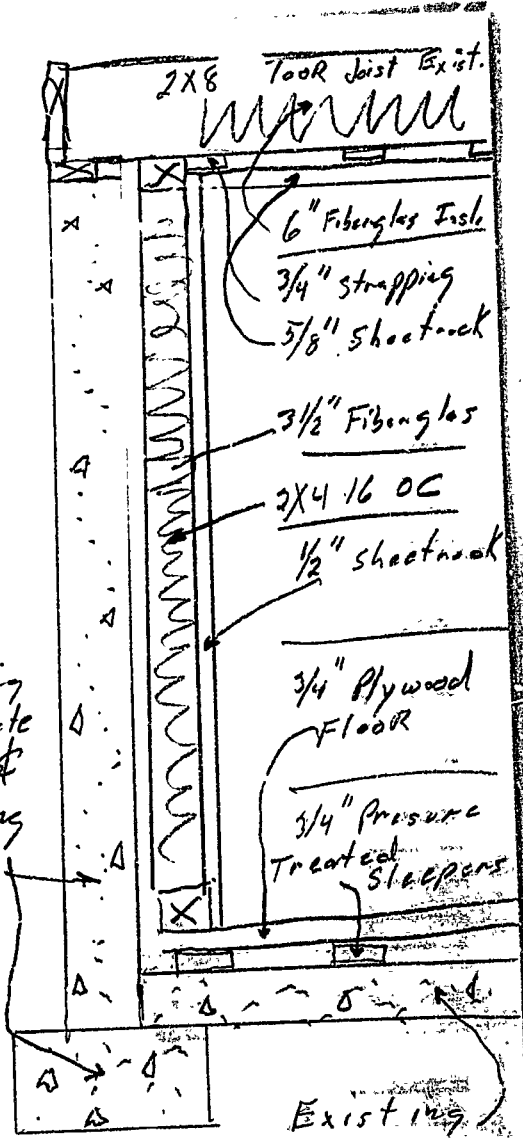 2X8 Joist Exist.
6" Fiberglas Insl.
3/4" strapping
5/8" Sheetrock
3 1/2" Fiberglas
2X4 16 OC
1/2" sheetrock
3/4" Plywood
FlooR
3/4" Presure
Treated
Sleepers
Existing